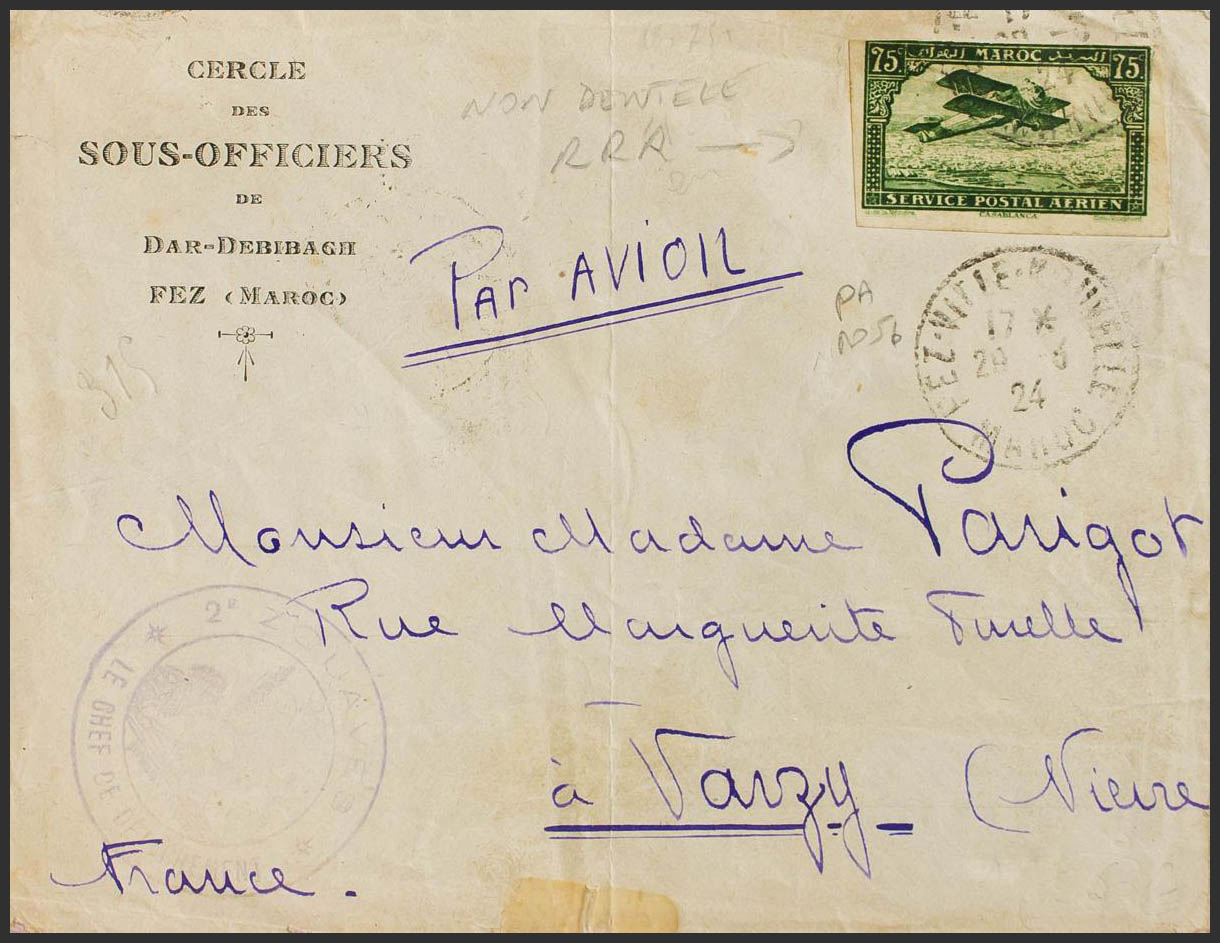 CERCLE
DES
SOUS-OFFICIERS
DE
DAR-DEBIBAGH
FEZ (MAROC)
NON DENTELE
RRR
75c. MAROC البريد الهوائي 75c.
SERVICE POSTAL AÉRIEN
CASABLANCA
Par AVION
PA
No 5b
FEZ-VILLE-NOUVELLE
17 *
24
MAROC
Monsieur Madame Parigot
Rue Marguerite
2E ZOUAVES
LE CHEF DE
à Varzy (Nievre
France.